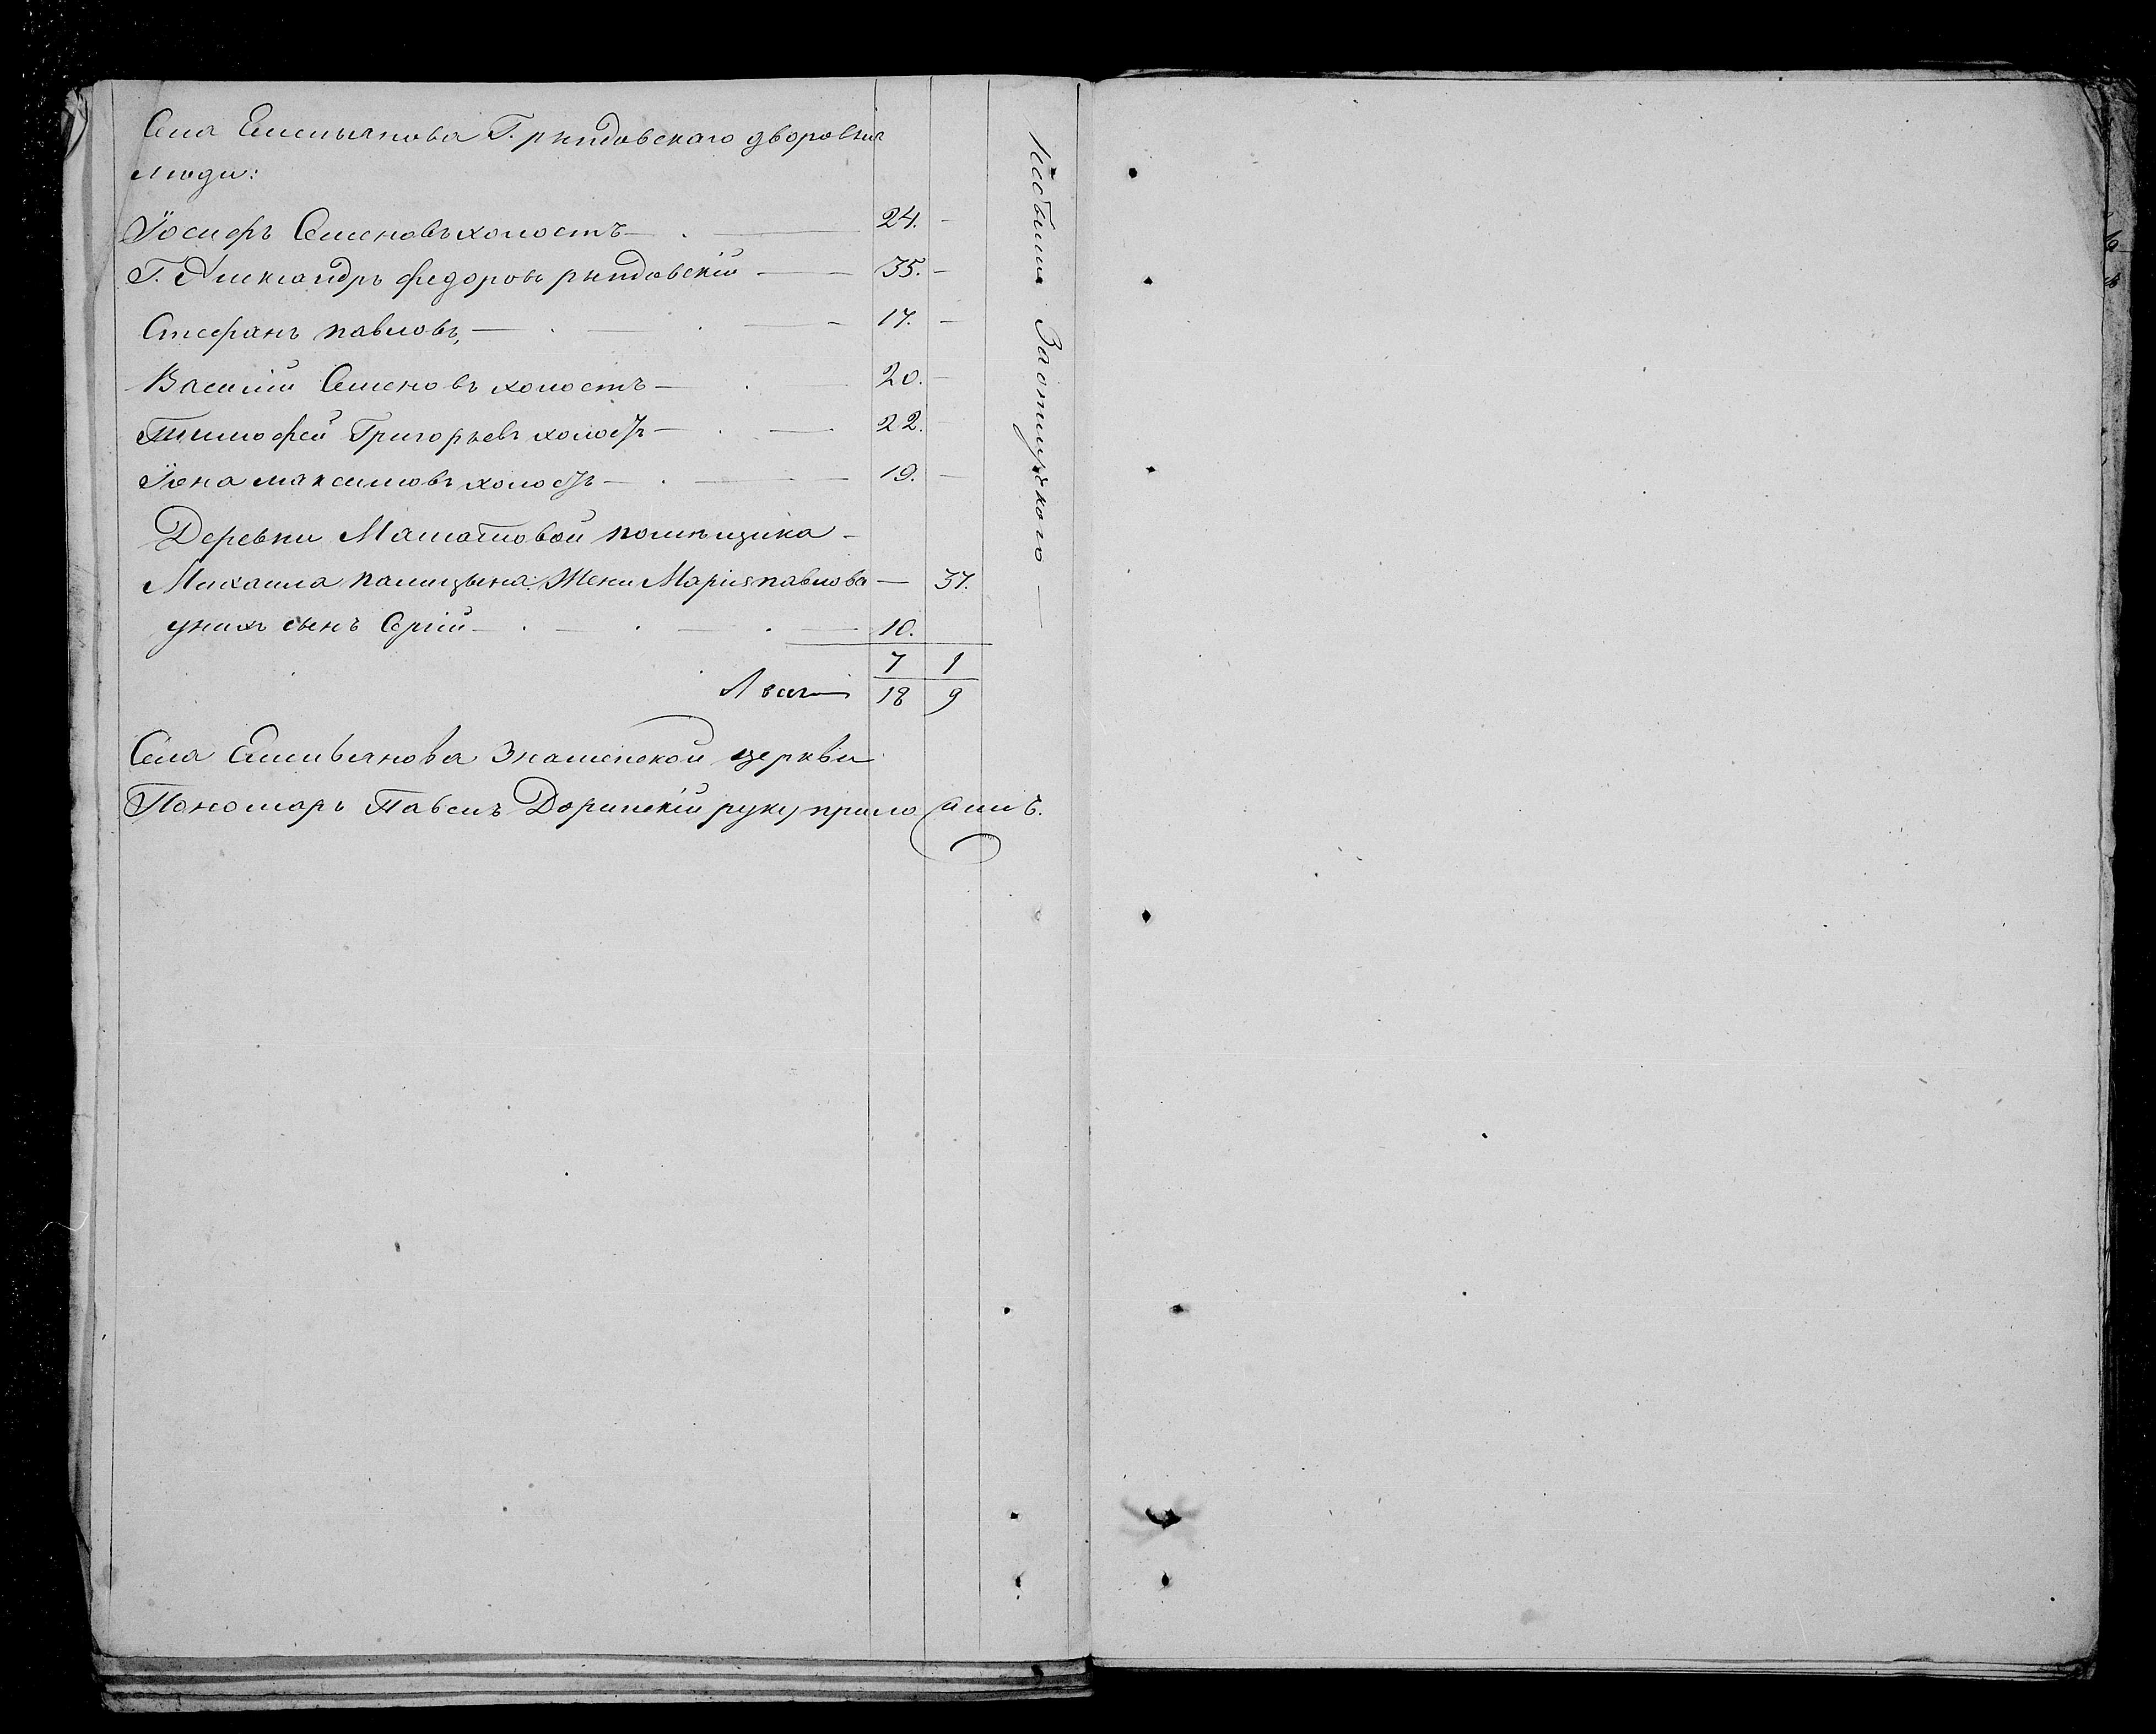 Села Емельянова Г. рындовскаго дворовыя
люди:
Іосифъ Семеновъ холостъ — 24. —
Г. Александръ федоровъ рындовскій — 35. —
Стефанъ павловъ, — 17. —
Василій Семеновъ холостъ — 20. —
Тимофей Григорьевъ холостъ — 22.
Іона максимовъ холостъ — 19. —
Деревни помѣщика —
Михаила палицына Жена Марія павлова — 37.
у нихъ сынъ Сергій — 10.
7 1
А всего 18 9
Села Емельянова Знаменской церкви
Пономарь Павелъ руку приложилъ.
Небыли За отлучкою —